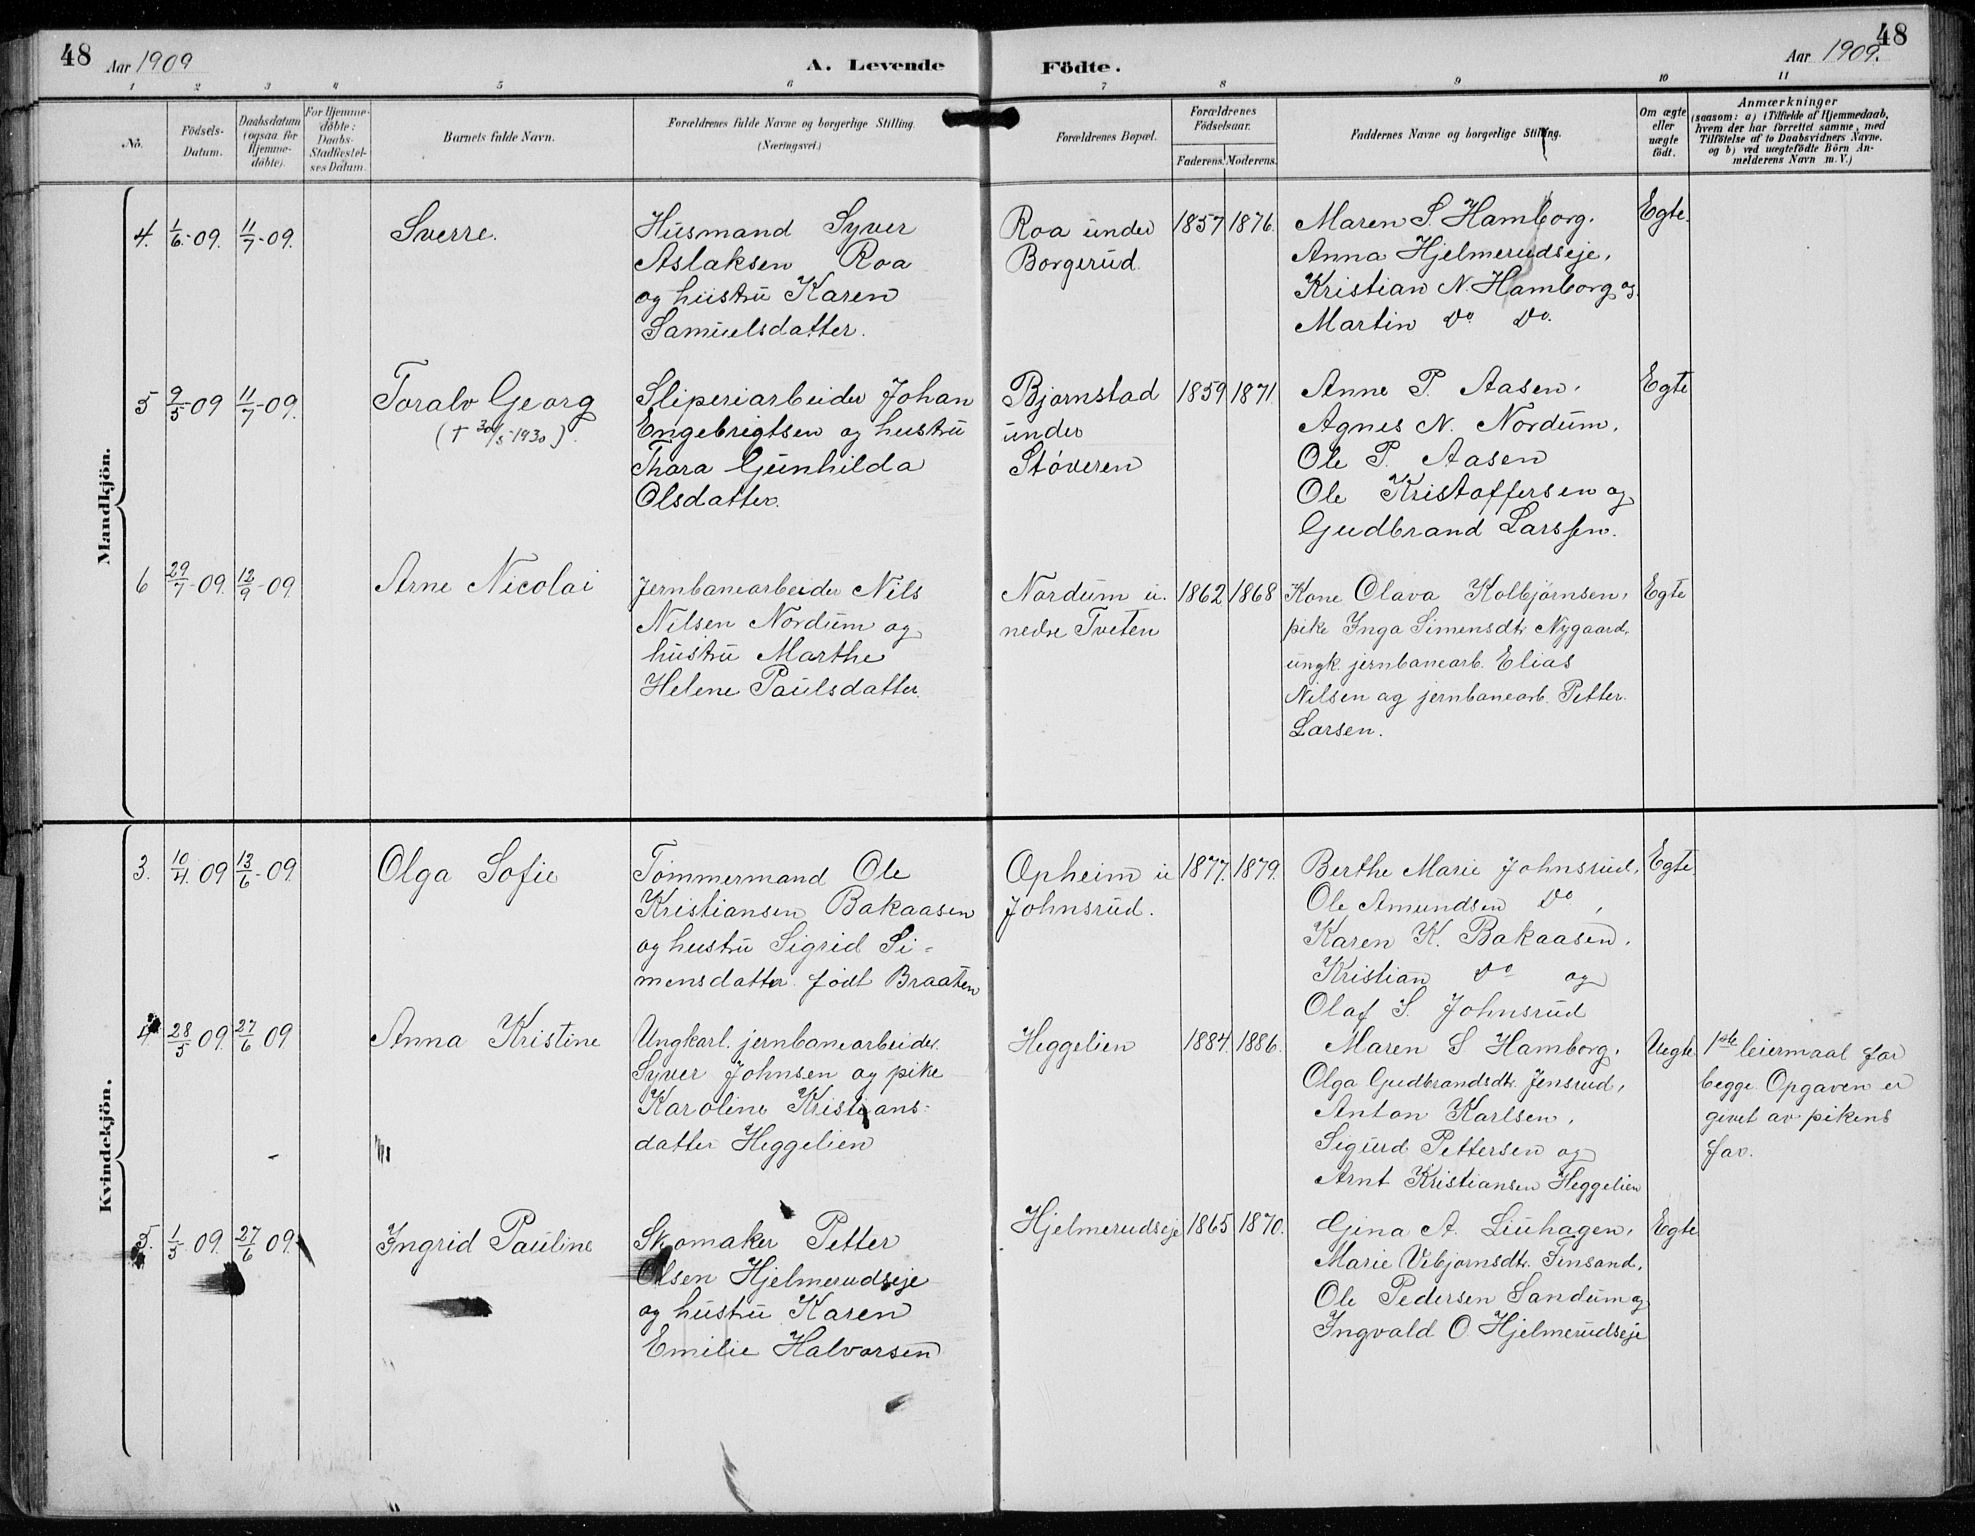 48
Aar 1909
A. Levende
Födte.
Aar 1909.
48
1 2 3 4 5 6 7 8 9 10 11
No.
Födsels-
Datum.
Daabsdatum
(ogsaa for
Hjemme-
döbte).
For Hjemme-
döbte:
Daabs-
Stadfæstel-
ses Datum.
Barnets fulde Navn.
Forældrenes fulde Navne og borgerlige Stilling.
(Næringsvei.)
Forældrenes Bopæl.
Forældrenes
Födselsaar.
Faderens. Moderens.
Faddernes Navne og borgerlige Stilling.
Om ægte
eller
uægte
födt.
Anmærkninger
(saasom: a) i Tilfælde af Hjemmedaab,
hvem der har forrettet samme, med
Tilföielse af to Daabsvidners Navne.
og b) ved uægtefödte Börn An-
melderens Navn m. V.)
Mandkjön.
4. 1/6-09. 11/7-09.
Sverre.
Husmand Syver
Aslaksen Roa
og hustru Karen
Samuelsdatter.
Roa under
Borgerud.
1857 1876.
Maren S. Hamborg.
Anna Hjelmerudseje,
Kristian N. Hamborg og
Martin do do.
Egte.
5 9/5-09 11/7-09.
Toralv Georg
(† 30/5-1930).
Sliperiarbeider Johan
Engebrigtsen og hustru
Thora Gunhilda
Olsdatter.
Bjørnstad
under
Støveren
1859 1871.
Anne P. Aasen.
Agnes N. Nordum.
Ole P. Aasen
Ole Kristoffersen og
Gudbrand Larssen.
Egte
6 29/7-09. 12/9-09.
Arne Nicolai
Jernbanearbeider Nils
Nilsen Nordum og
hustru Marthe
Helene Paulsdatter.
Nordum u.
nedre Tveten
1862 1868
Kone Olava Kolbjørnsen,
pike Inga Simensdtr Nygaard,
ungk. jernbanearb. Elias
Nilsen og jernbanearb. Petter
Larsen.
Egte
Kvindekjön.
3. 10/4. 09 13/6-09.
Olga Sofie
Tømmermand Ole
Kristiansen Bakaasen
og hustru Sigrid Si-
mensdatter født Braaten
Opheim u
Johnsrud.
1877. 1879.
Berthe Marie Johnsrud,
Ole Amundsen do,
Karen K. Bakaasen,
Kristian do og
Olaf S. Johnsrud
Egte
4. 28/5 09. 27/6 09
Anna Kristine
Ungkarl. jernbanearbeider.
Syver Johnsen og pike
Karoline Kristians-
datter Heggelien
Heggelien
1884. 1886.
Maren S Hamborg.
Olga Gudbrandsdtr. Jensrud,
Anton Karlsen,
Sigurd Pettersen og
Arnt Kristiansen Heggelien
Uegte
1ste leiermaal for
begge. Opgaven er
givet av pikens
far.
5. 1/5 09. 27/6 09.
Ingrid Pauline
Skomaker Petter
Olsen Hjelmerudseje
og hustru Karen
Emilie Halvorsen
Hjelmerudseje
1865 1870.
Gina A. Liuhagen,
Marie Vebjørnsdtr. Finsand,
Ole Pedersen Sandum og
Ingvald O. Hjelmerudseje
Egte